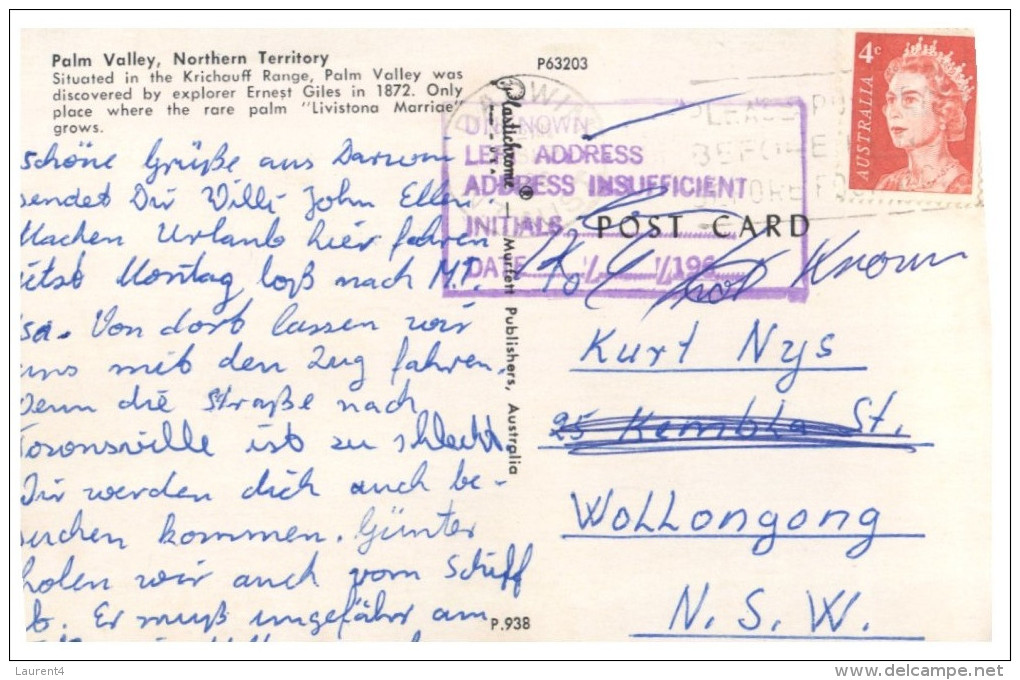 Palm Valley, Northern Territory
Situated in the Krichauff Range, Palm Valley was
discovered by explorer Ernest Giles in 1872. Only
place where the rare palm "Livistona Marriae"
grows.
P63203
schöne Grüße aus Darwin
sendet Dir Willi John Ellen
Machen Urlaub hier fahren
Montag loß nach M.T.
Isa. Von dort lassen wir
uns mit den Zug fahren.
Denn die Straße nach
ist zu schlecht
Wir werden dich auch be-
suchen kommen. Günter
holen wir auch vom Schiff
b. Er muß ungefähr am
P.938
Plastichrome ® — Murfett Publishers, Australia
4c
AUSTRALIA
UNKNOWN
LEFT ADDRESS
ADDRESS INSUFFICIENT
INITIALS
DATE / /196
POST CARD
Not Known
Kurt Nys
25 Kembla St.
WoLLongong
N.S.W.
Laurent4